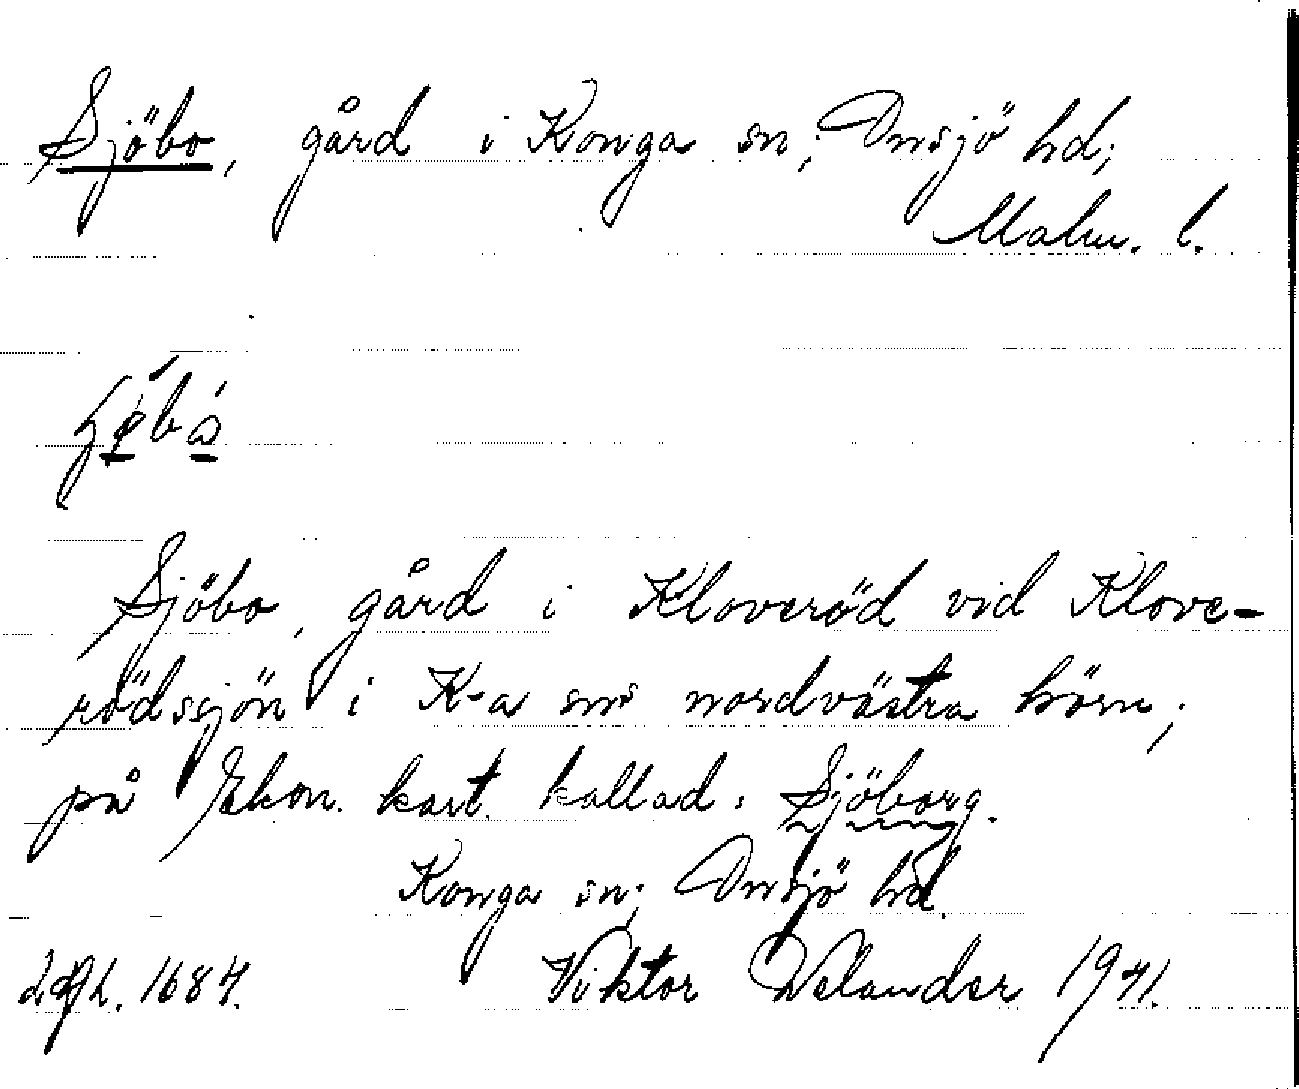 Sjöbo, gård i Konga sn; Onsjö hd;
Malm. l.
Sjöbo, gård i Kloveröd vid Klove-
rödssjön i K-a sns nordvästra hörn;
på Ekon. kart. kallad: Sjöborg.
Konga sn; Onsjö hd.
1684. Viktor Velander 1941.